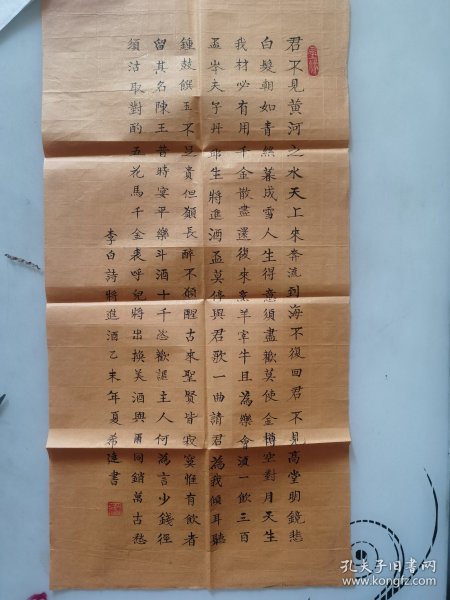 君不見黃河之水天上來奔流到海不復回君不見高堂明鏡悲
白髮朝如青絲暮成雪人生得意須盡歡莫使金樽空對月天生
我材必有用千金散盡還復來烹羊宰牛且為樂會須一飲三百
盃岑夫子丹邱生將進酒盃莫停與君歌一曲請君為我傾耳聽
鍾鼓饌玉不足貴但願長醉不願醒古來聖賢皆寂寞惟有飲者
留其名陳王昔時宴平樂斗酒十千恣歡謔主人何為言少錢徑
須沽取對酌五花馬千金裘呼兒將出換美酒與爾同銷萬古愁
李白詩將進酒乙未年夏希書
孔夫子旧书网
www.kongfz.com